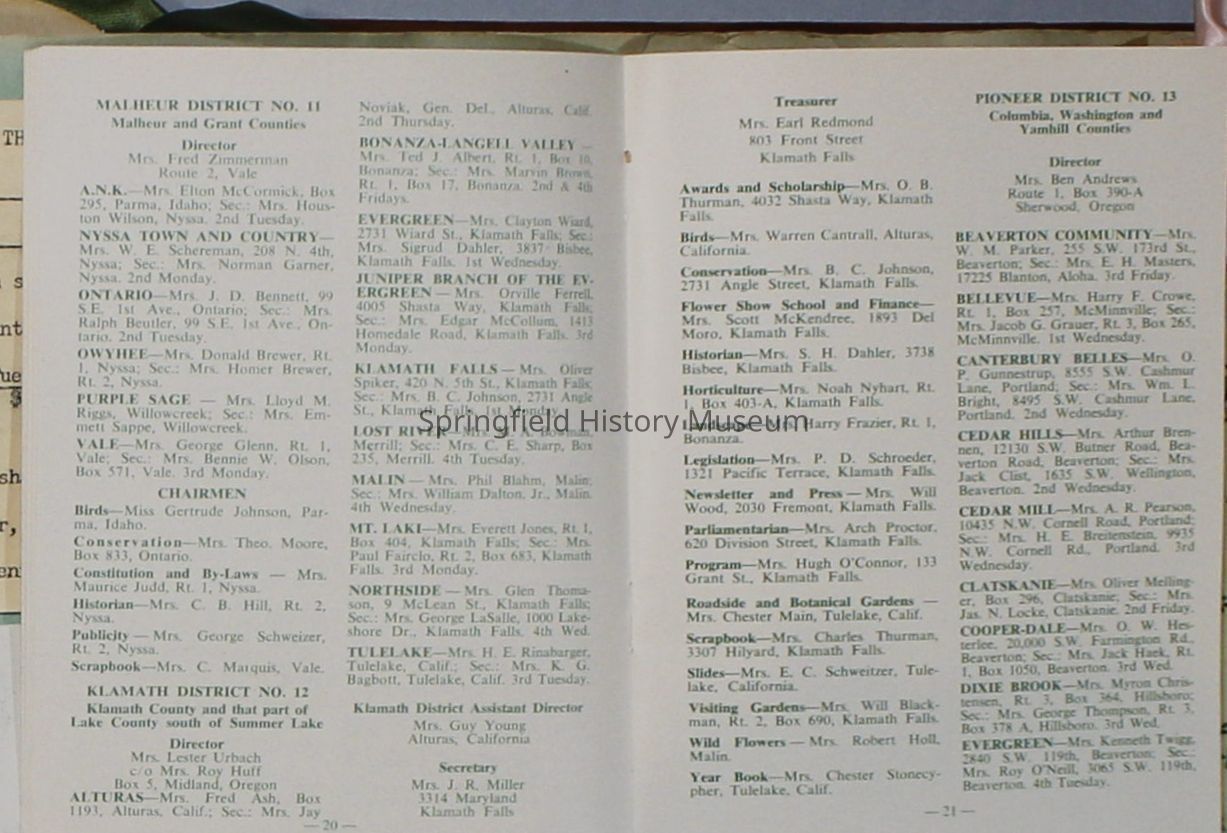 MALHEUR DISTRICT NO. 11
Malheur and Grant Counties
Director
Mrs. Fred Zimmerman
Route 2, Vale
A.N.K.—Mrs. Elton McCormick, Box
295, Parma, Idaho; Sec.: Mrs. Hous-
ton Wilson, Nyssa. 2nd Tuesday.
NYSSA TOWN AND COUNTRY—
Mrs. W. E. Schereman, 208 N. 4th,
Nyssa; Sec.: Mrs. Norman Garner,
Nyssa. 2nd Monday.
ONTARIO—Mrs. J. D. Bennett, 99
S.E. 1st Ave., Ontario; Sec.: Mrs.
Ralph Beutler, 99 S.E. 1st Ave., On-
tario. 2nd Tuesday.
OWYHEE—Mrs. Donald Brewer, Rt.
1, Nyssa; Sec.: Mrs. Homer Brewer,
Rt. 2, Nyssa.
PURPLE SAGE — Mrs. Lloyd M.
Riggs, Willowcreek; Sec.: Mrs. Em-
mett Sappe, Willowcreek.
VALE—Mrs. George Glenn, Rt. 1,
Vale; Sec.: Mrs. Bennie W. Olson,
Box 571, Vale. 3rd Monday.
CHAIRMEN
Birds—Miss Gertrude Johnson, Par-
ma, Idaho.
Conservation—Mrs. Theo. Moore,
Box 833, Ontario.
Constitution and By-Laws — Mrs.
Maurice Judd, Rt. 1, Nyssa.
Historian—Mrs. C. B. Hill, Rt. 2,
Nyssa.
Publicity—Mrs. George Schweizer,
Rt. 2, Nyssa.
Scrapbook—Mrs. C. Marquis, Vale.
KLAMATH DISTRICT NO. 12
Klamath County and that part of
Lake County south of Summer Lake
Director
Mrs. Lester Urbach
c/o Mrs. Roy Huff
Box 5, Midland, Oregon
ALTURAS—Mrs. Fred Ash, Box
1193, Alturas, Calif.; Sec.: Mrs. Jay
—20—
Noviak, Gen. Del., Alturas, Calif.
2nd Thursday.
BONANZA-LANGELL VALLEY —
Mrs. Ted J. Albert, Rt. 1, Box 10,
Bonanza; Sec.: Mrs. Marvin Brown,
Rt. 1, Box 17, Bonanza. 2nd & 4th
Fridays.
EVERGREEN—Mrs. Clayton Wiard,
2731 Wiard St., Klamath Falls; Sec.:
Mrs. Sigrud Dahler, 3837 Bisbee,
Klamath Falls. 1st Wednesday.
JUNIPER BRANCH OF THE EV-
ERGREEN — Mrs. Orville Ferrell,
4005 Shasta Way, Klamath Falls;
Sec.: Mrs. Edgar McCollum, 1413
Homedale Road, Klamath Falls. 3rd
Monday.
KLAMATH FALLS — Mrs. Oliver
Spiker, 420 N. 5th St., Klamath Falls;
Sec.: Mrs. B. C. Johnson, 2731 Angle
St., Klamath Falls. 1st Monday.
LOST RIVER—Mrs. A. Bowman,
Merrill; Sec.: Mrs. C. E. Sharp, Box
235, Merrill. 4th Tuesday.
MALIN — Mrs. Phil Blahm, Malin;
Sec.: Mrs. William Dalton, Jr., Malin.
4th Wednesday.
MT. LAKI—Mrs. Everett Jones, Rt. 1,
Box 404, Klamath Falls; Sec.: Mrs.
Paul Fairclo, Rt. 2, Box 683, Klamath
Falls. 3rd Monday.
NORTHSIDE — Mrs. Glen Thoma-
son, 9 McLean St., Klamath Falls;
Sec.: Mrs. George LaSalle, 1000 Lake-
shore Dr., Klamath Falls. 4th Wed.
TULELAKE—Mrs. H. E. Rinabarger,
Tulelake, Calif.; Sec.: Mrs. K. G.
Bagbott, Tulelake, Calif. 3rd Tuesday.
Klamath District Assistant Director
Mrs. Guy Young
Alturas, California
Secretary
Mrs. J. R. Miller
3314 Maryland
Klamath Falls
Treasurer
Mrs. Earl Redmond
803 Front Street
Klamath Falls
Awards and Scholarship—Mrs. O. B.
Thurman, 4032 Shasta Way, Klamath
Falls.
Birds—Mrs. Warren Cantrall, Alturas,
California.
Conservation—Mrs. B. C. Johnson,
2731 Angle Street, Klamath Falls.
Flower Show School and Finance—
Mrs. Scott McKendree, 1893 Del
Moro, Klamath Falls.
Historian—Mrs. S. H. Dahler, 3738
Bisbee, Klamath Falls.
Horticulture—Mrs. Noah Nyhart, Rt.
1, Box 403-A, Klamath Falls.
Landscape—Mrs. Harry Frazier, Rt. 1,
Bonanza.
Legislation—Mrs. P. D. Schroeder,
1321 Pacific Terrace, Klamath Falls.
Newsletter and Press — Mrs. Will
Wood, 2030 Fremont, Klamath Falls.
Parliamentarian—Mrs. Arch Proctor,
620 Division Street, Klamath Falls.
Program—Mrs. Hugh O'Connor, 133
Grant St., Klamath Falls.
Roadside and Botanical Gardens —
Mrs. Chester Main, Tulelake, Calif.
Scrapbook—Mrs. Charles Thurman,
3307 Hilyard, Klamath Falls.
Slides—Mrs. E. C. Schweitzer, Tule-
lake, California.
Visiting Gardens—Mrs. Will Black-
man, Rt. 2, Box 690, Klamath Falls.
Wild Flowers — Mrs. Robert Holl,
Malin.
Year Book—Mrs. Chester Stonecy-
pher, Tulelake, Calif.
—21—
PIONEER DISTRICT NO. 13
Columbia, Washington and
Yamhill Counties
Director
Mrs. Ben Andrews
Route 1, Box 390-A
Sherwood, Oregon
BEAVERTON COMMUNITY—Mrs.
W. M. Parker, 255 S.W. 173rd St.,
Beaverton; Sec.: Mrs. E. H. Masters,
17225 Blanton, Aloha. 3rd Friday.
BELLEVUE—Mrs. Harry F. Crowe,
Rt. 1, Box 257, McMinnville; Sec.:
Mrs. Jacob G. Grauer, Rt. 3, Box 265,
McMinnville. 1st Wednesday.
CANTERBURY BELLES—Mrs. O.
P. Gunnestrup, 8555 S.W. Cashmur
Lane, Portland; Sec.: Mrs. Wm. L.
Bright, 8495 S.W. Cashmur Lane,
Portland. 2nd Wednesday.
CEDAR HILLS—Mrs. Arthur Bren-
nen, 12130 S.W. Butner Road, Bea-
verton Road, Beaverton; Sec.: Mrs.
Jack Clist, 1635 S.W. Wellington,
Beaverton. 2nd Wednesday.
CEDAR MILL—Mrs. A. R. Pearson,
10435 N.W. Cornell Road, Portland;
Sec.: Mrs. H. E. Breitenstein, 9935
N.W. Cornell Rd., Portland. 3rd
Wednesday.
CLATSKANIE—Mrs. Oliver Melling-
er, Box 296, Clatskanie; Sec.: Mrs.
Jas. N. Locke, Clatskanie. 2nd Friday.
COOPER-DALE—Mrs. O. W. Hes-
terlee, 20,000 S.W. Farmington Rd.,
Beaverton; Sec.: Mrs. Jack Haek, Rt.
1, Box 1050, Beaverton. 3rd Wed.
DIXIE BROOK—Mrs. Myron Chris-
tensen, Rt. 3, Box 364, Hillsboro;
Sec.: Mrs. George Thompson, Rt. 3,
Box 378 A, Hillsboro. 3rd Wed.
EVERGREEN—Mrs. Kenneth Twigg,
2840 S.W. 119th, Beaverton; Sec.:
Mrs. Roy O'Neill, 3065 S.W. 119th,
Beaverton. 4th Tuesday.
Springfield History Museum